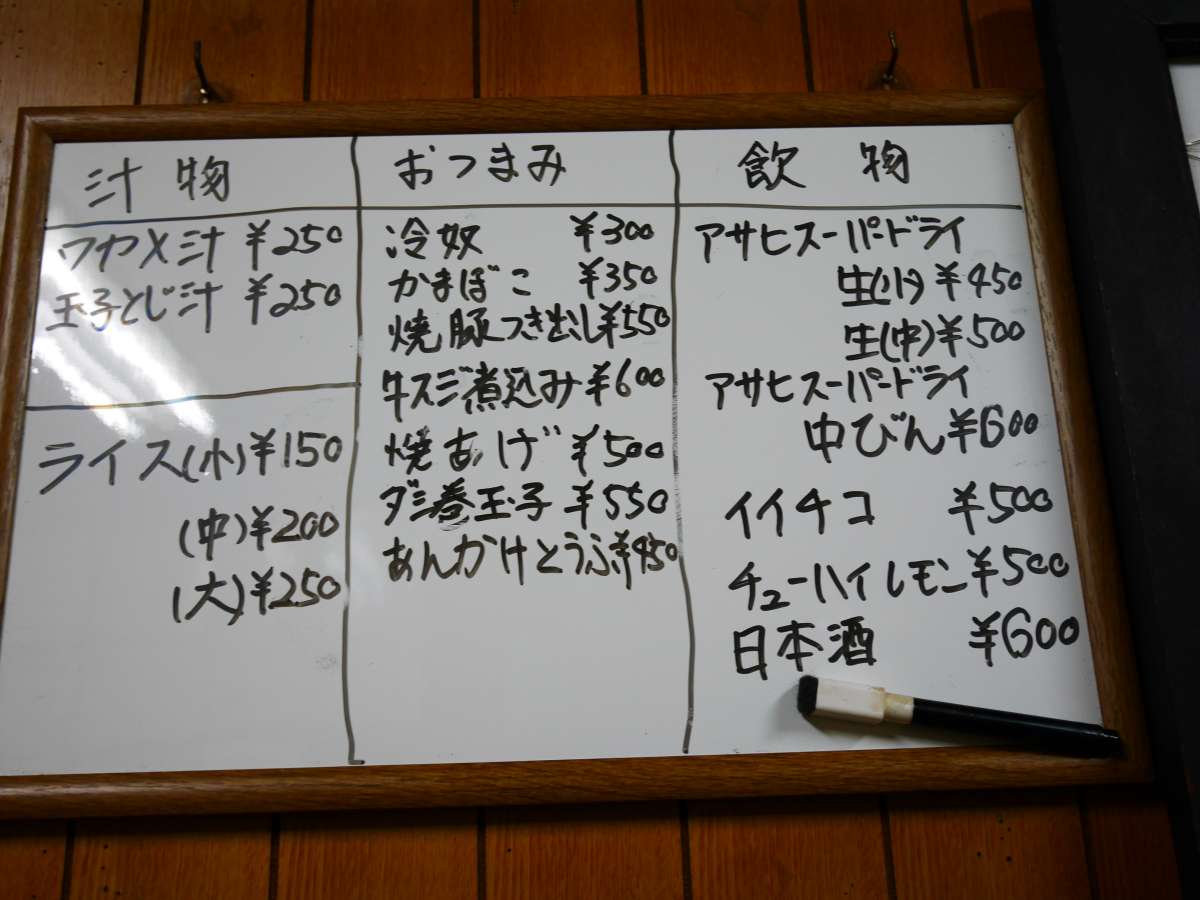 汁物
ワカメ汁 ¥250
玉子とじ汁 ¥250
ライス(小)¥150
(中)¥200
(大)¥250
おつまみ
冷奴 ¥300
かまぼこ ¥350
焼豚つき出し¥550
牛スジ煮込み¥600
焼あげ ¥500
ダシ巻玉子 ¥550
あんかけとうふ¥450
飲物
アサヒスーパードライ
生(小)¥450
生(中)¥500
アサヒスーパードライ
中びん¥600
イイチコ ¥500
チューハイレモン¥500
日本酒 ¥600